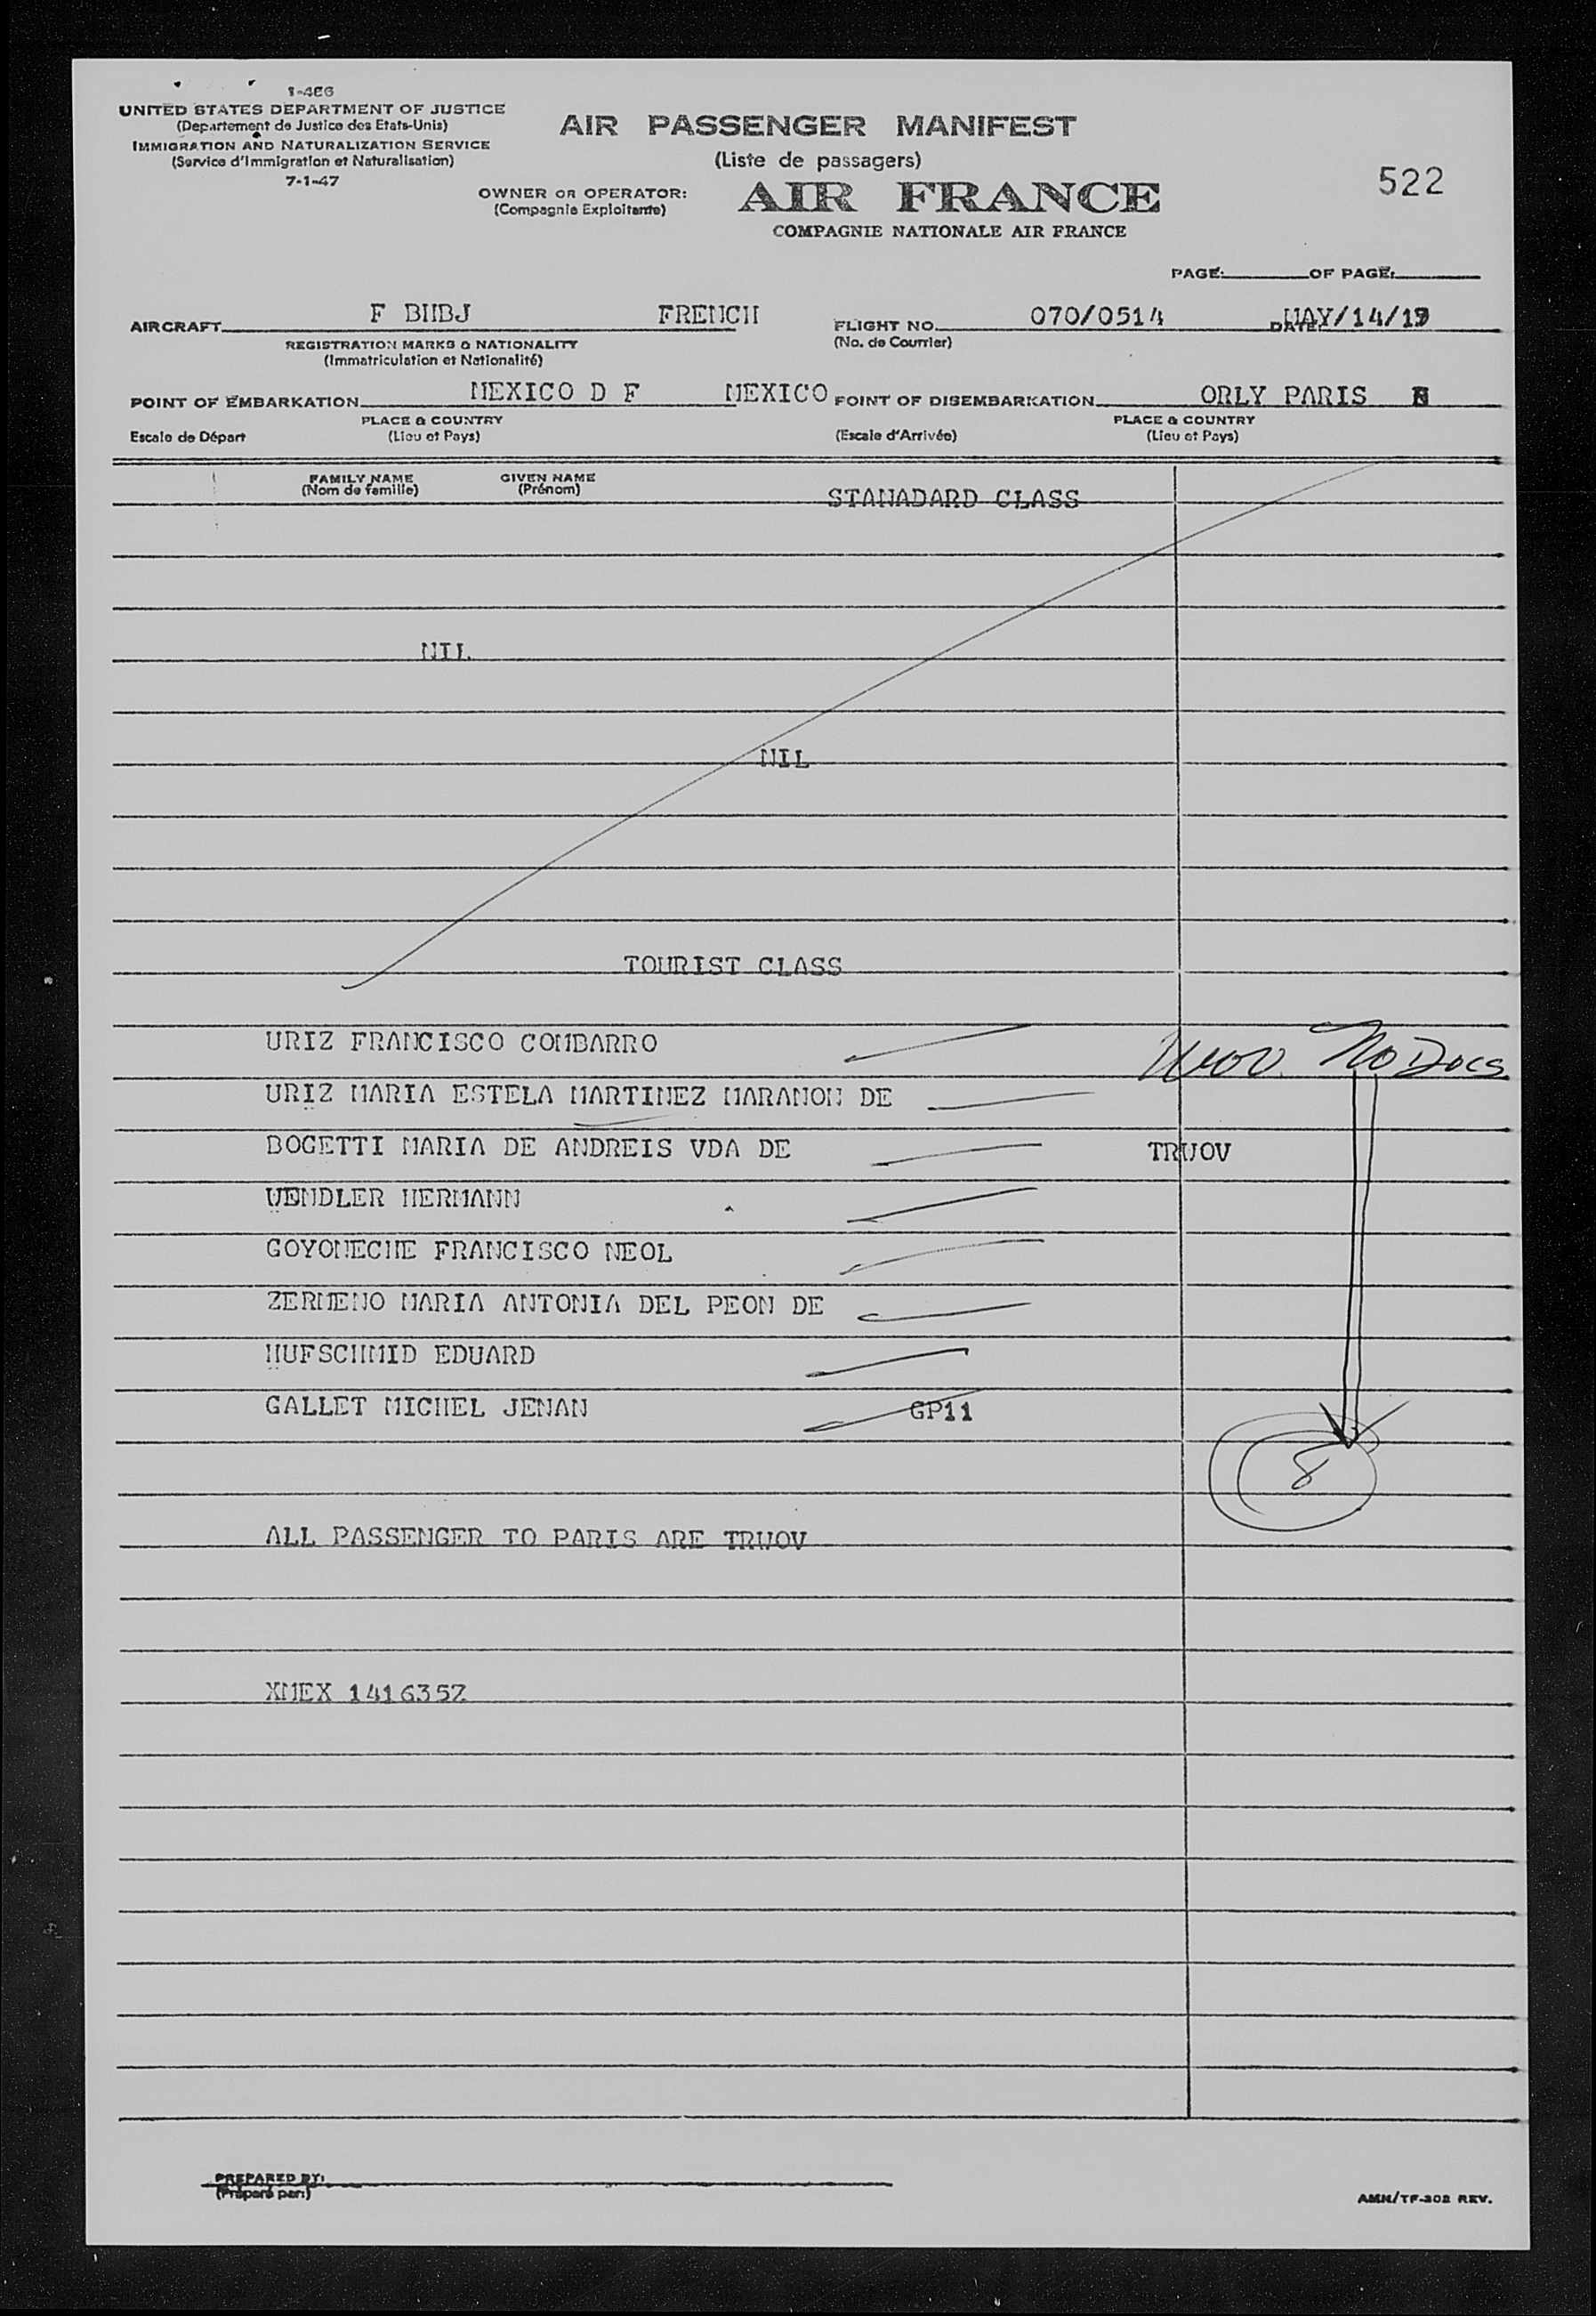 1-466
UNITED STATES DEPARTMENT OF JUSTICE
(Departement de Justice des Etats-Unis)
IMMIGRATION AND NATURALIZATION SERVICE
(Service d'Immigration et Naturalisation)
7-1-47
AIR PASSENGER MANIFEST
(Liste de passagers)
522
OWNER OR OPERATOR: AIR FRANCE
(Compagnie Exploitante)
COMPAGNIE NATIONALE AIR FRANCE
PAGE: OF PAGE:
AIRCRAFT F BHBJ FRENCH FLIGHT NO. 070/0514 DATE MAY/14/19
REGISTRATION MARKS & NATIONALITY (No. de Courrier)
(Immatriculation et Nationalité)
POINT OF EMBARKATION MEXICO D F MEXICO POINT OF DISEMBARKATION ORLY PARIS
PLACE & COUNTRY PLACE & COUNTRY
Escale de Départ (Lieu et Pays) (Escale d'Arrivée) (Lieu et Pays)
FAMILY NAME GIVEN NAME
(Nom de famille) (Prénom)
STANADARD CLASS
NIL
NIL
TOURIST CLASS
URIZ FRANCISCO COMBARRO
No Docs
URIZ MARIA ESTELA MARTINEZ MARANON DE
BOGETTI MARIA DE ANDREIS VDA DE TRWOV
WENDLER HERMANN
GOYONECHE FRANCISCO NEOL
ZERMENO MARIA ANTONIA DEL PEON DE
HUFSCHMID EDUARD
GALLET MICHEL JENAN GP11
8
ALL PASSENGER TO PARIS ARE TRWOV
XMEX 141635Z
PREPARED BY:
(Préparé par:)
AMN/TF-302 REV.